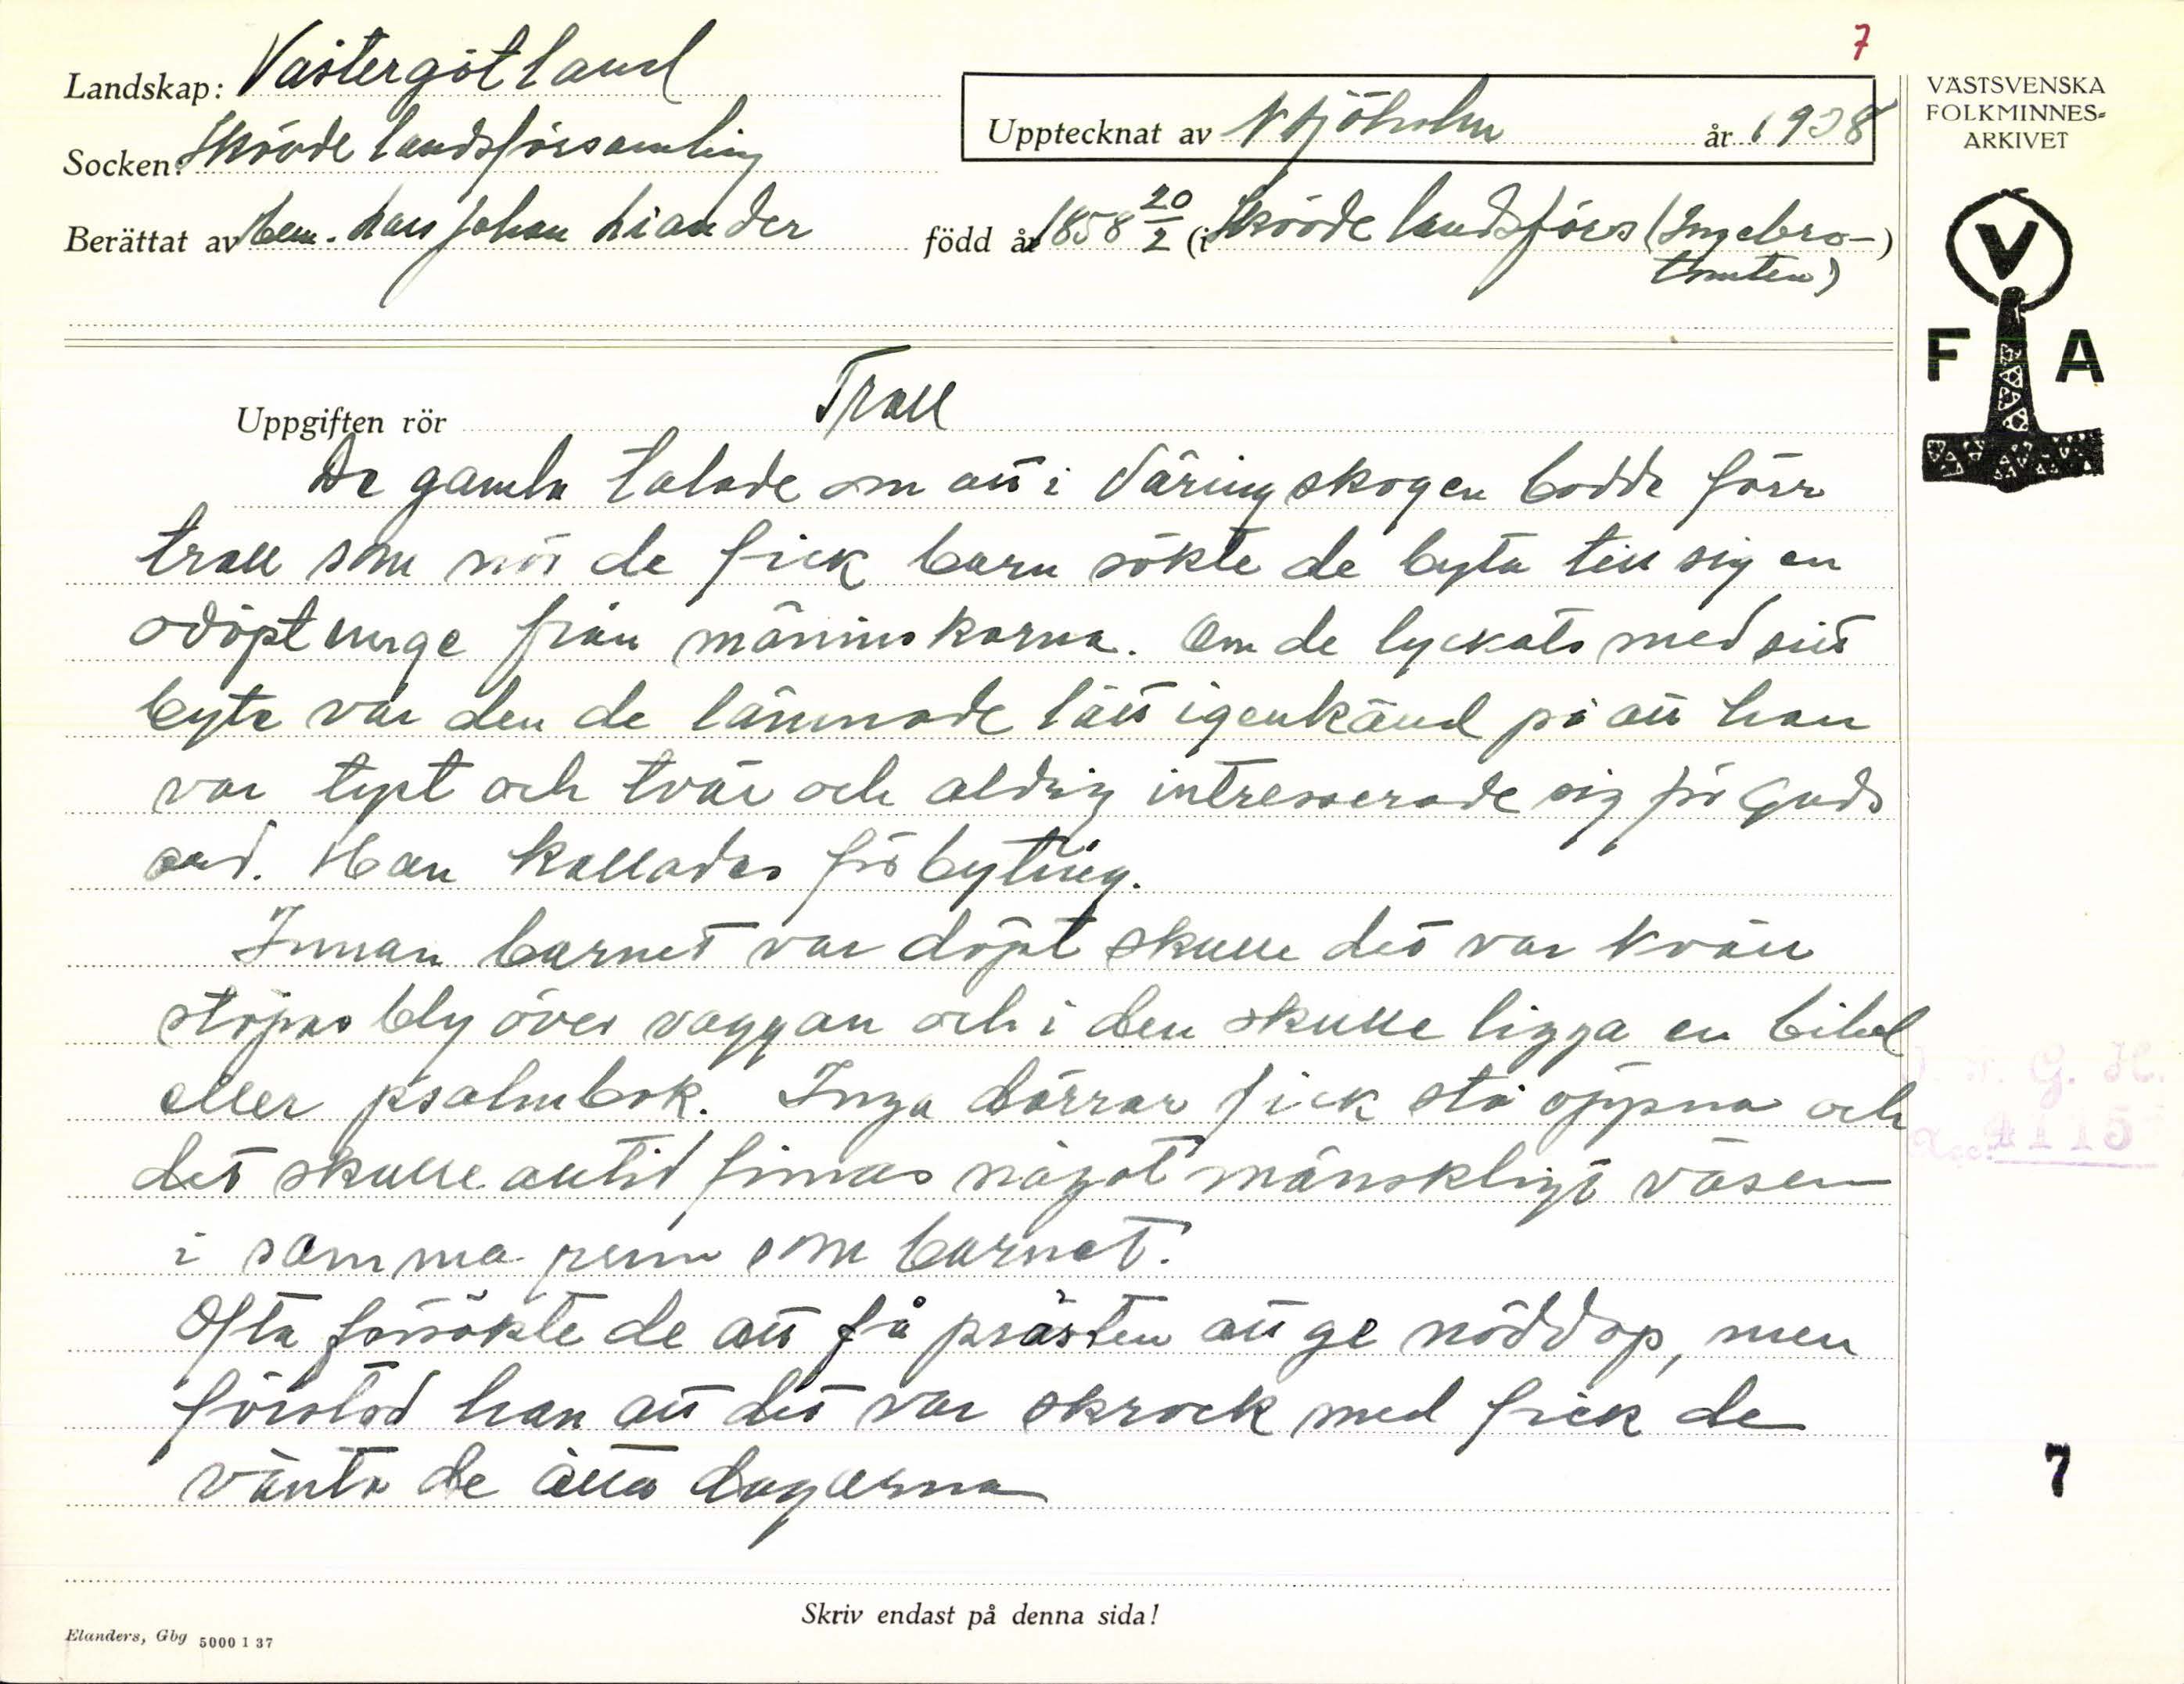 7
Landskap: Västergötland
Socken: Skövde landsförsamling
Upptecknat av N Sjöholm år 1938
Berättat av hem. Lars Johan Liander född år 1858 20/2 (i Skövde landsförs (Ingebro-)
tomten)
VÄSTSVENSKA
FOLKMINNES-
ARKIVET
V
F A
Uppgiften rör Troll
De gamla talade om att i Väringskogen bodde förr
troll som när de fick barn sökte de byta till sig en
odöpt unge från människorna. Om de lyckats med sitt
byte var den de lämnade lätt igenkänd på att han
var tyst och tvär och aldrig intresserade sig för Guds
ord. Han kallades för byting.
Innan barnet var döpt skulle det var kväll
stöpas bly över vaggan och i den skulle ligga en bibel
eller psalmbok. Inga dörrar fick stå öppna och
det skulle alltid finnas något mänskligt väsen
i samma rum som barnet.
Ofta försökte de att få prästen att ge nöddop, men
förstod han att det var skrock med fick de
vänta de åtta dagarna
G. H.
Acc. 4115
7
Skriv endast på denna sida!
Elanders, Gbg 5000 1 37